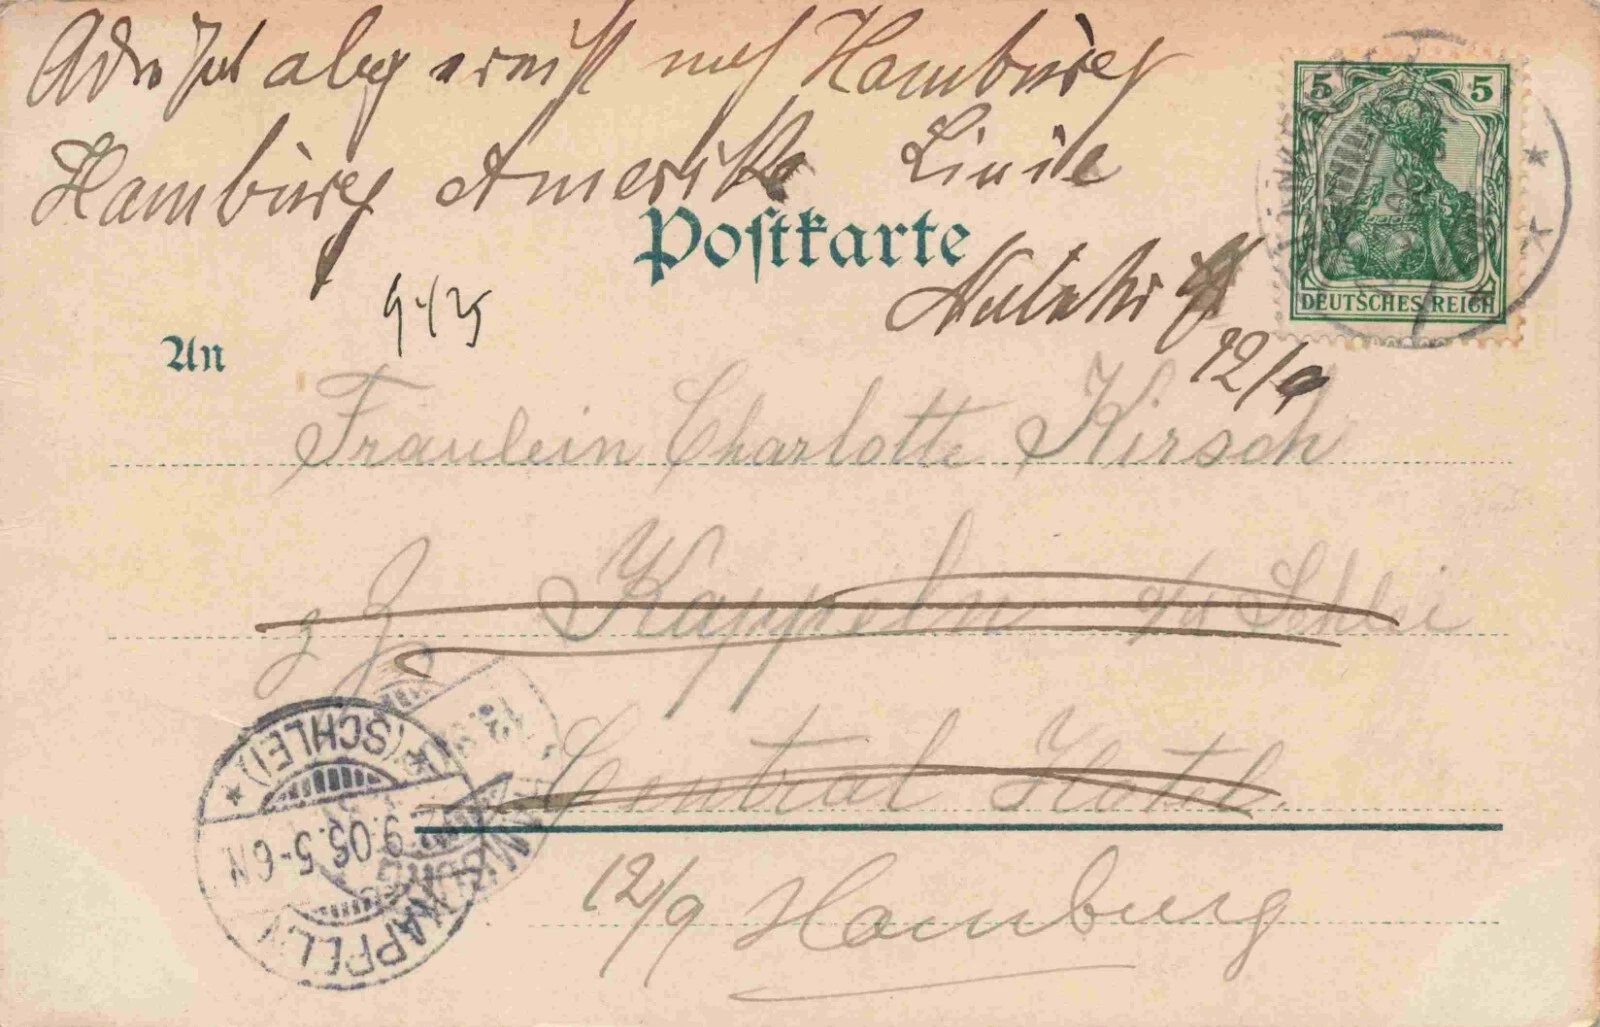 Adressat abgereist nach Hamburg
Hamburg Amerika Linie
Postkarte
5 5
DEUTSCHES REICH
12/9
An
Fräulein Charlotte Kirsch
z Z Kappeln a/d Schlei
Central Hotel
12/9 Hamburg
KAPPELN (SCHLEI)
9.05.5-6N
HAMBURG